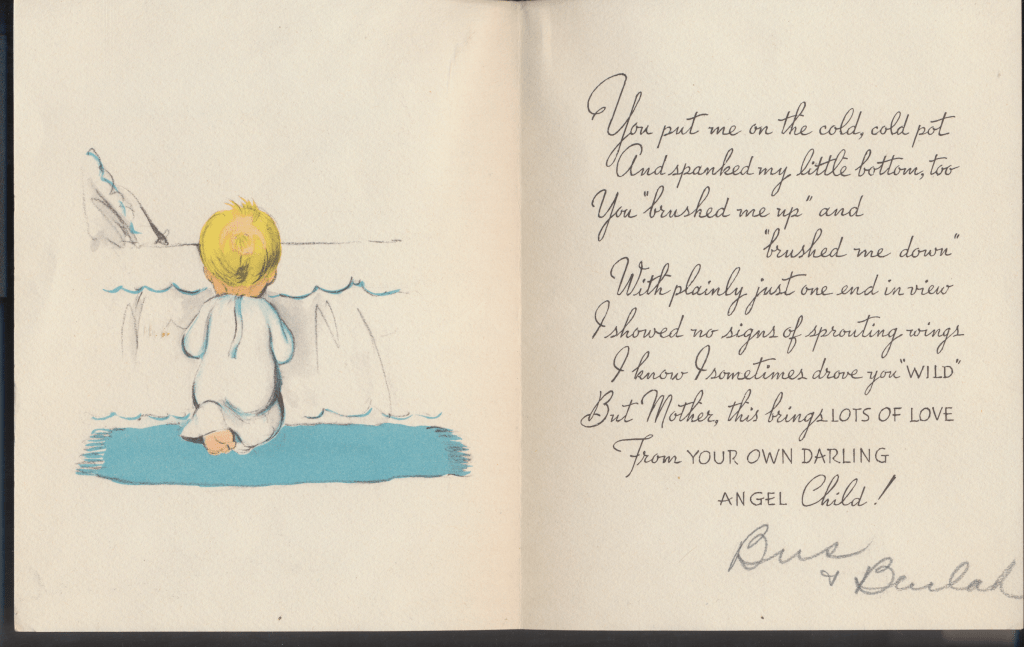 You put me on the cold, cold pot
And spanked my little bottom, too
You "brushed me up" and
"brushed me down"
With plainly just one end in view
I showed no signs of sprouting wings
I know I sometimes drove you "WILD"
But Mother, this brings LOTS OF LOVE
From YOUR OWN DARLING
ANGEL Child!
Bus
& Beulah